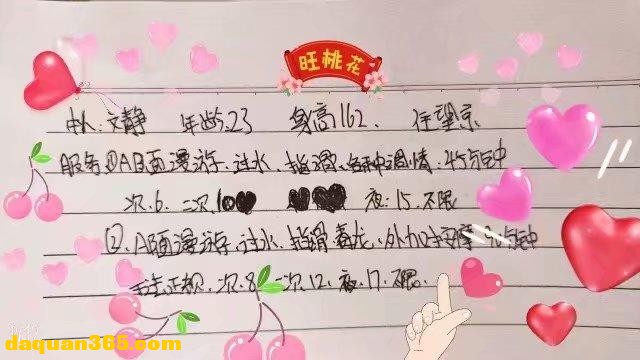 旺桃花
本人:文静 年龄:23 身高162. 住望京
服务①AB面漫游.过水.指滑.各种调情.45分钟
次.6. 二次.10 夜:15.不限
②.AB面漫游.过水.指滑.毒龙.外加 按摩 分钟
手法正规.次.8 二次.12.夜.17.不限.
daquan365.com